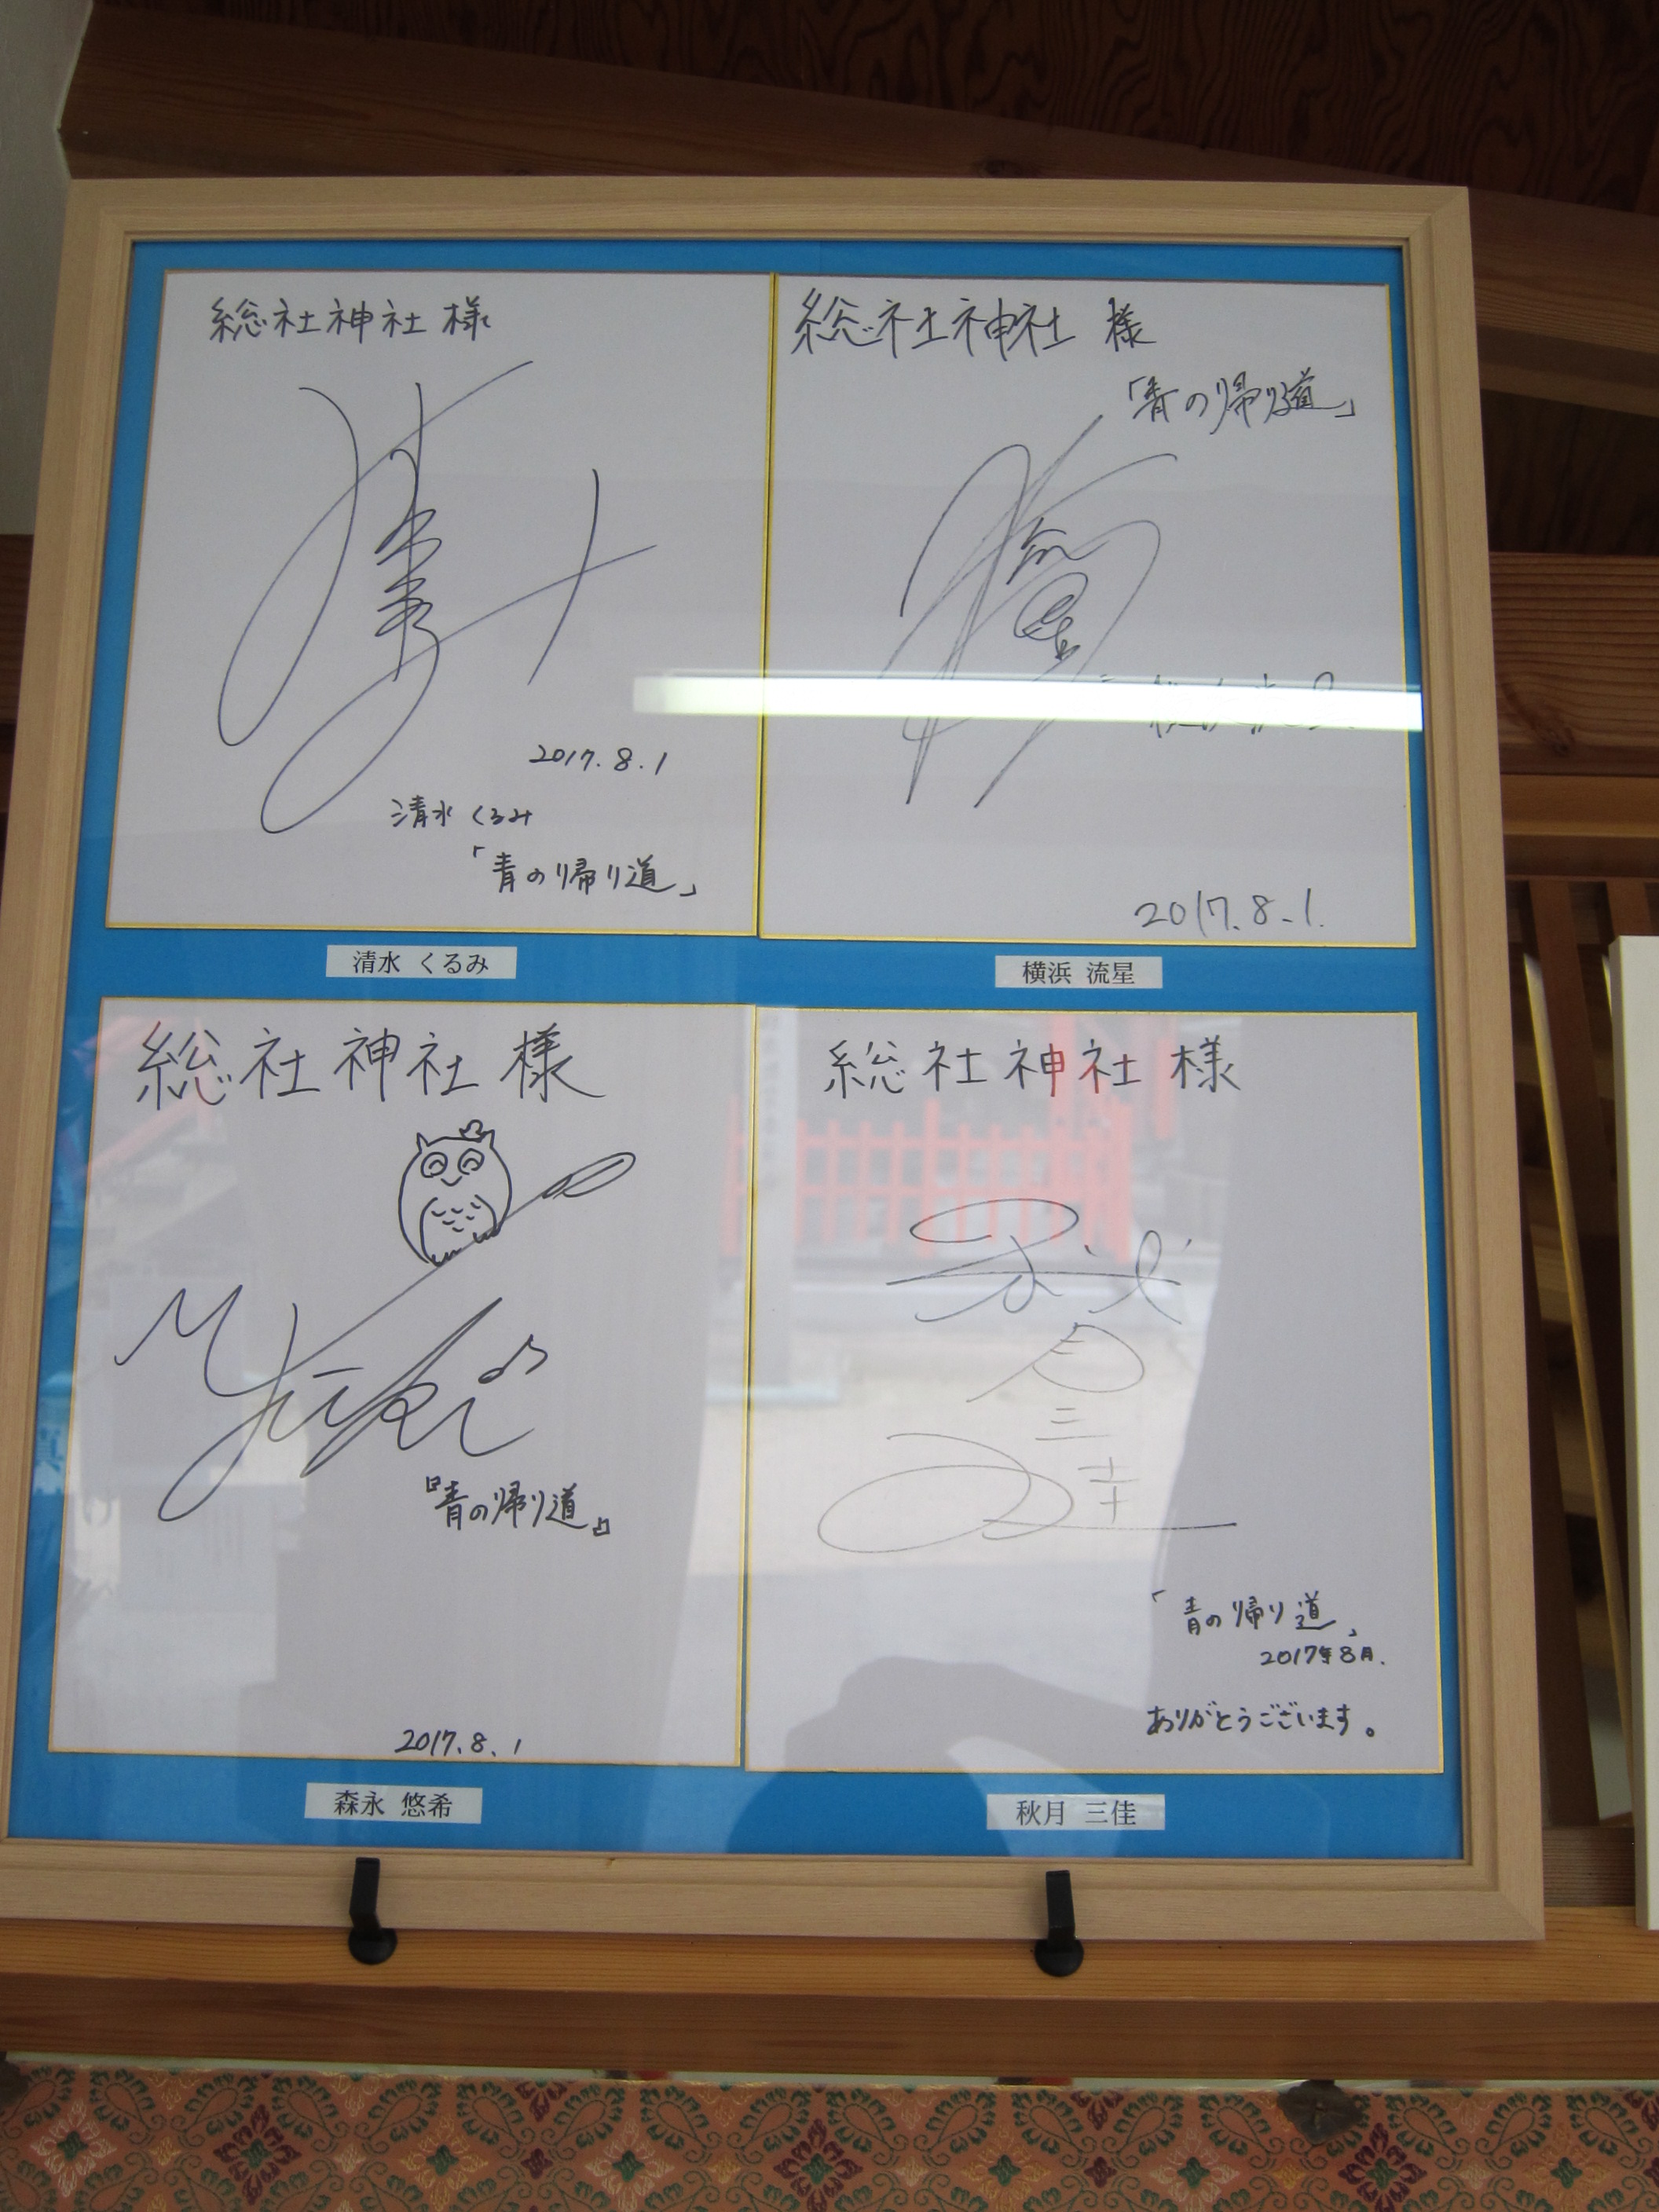 総社神社 様
2017.8.1
清水 くるみ
「青の帰り道」
清水 くるみ
総社神社 様
「青の帰り道」
2017.8.1.
横浜 流星
総社神社 様
Yuki
『青の帰り道』
2017.8.1
森永 悠希
総社神社 様
秋月
三
佳
「青の帰り道」
2017年8月.
ありがとうございます。
秋月 三佳